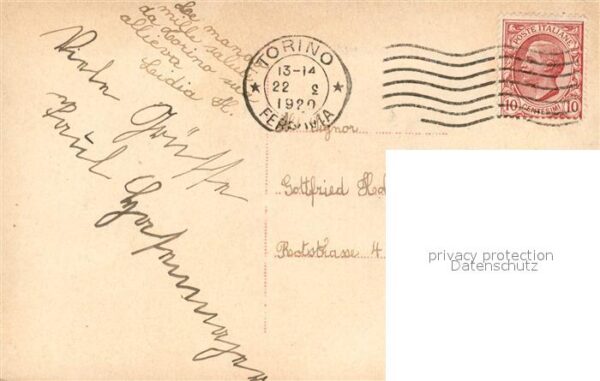 Le mando
mille saluti
da Torino sua
allieva
Lidia H.
Viele Grüsse
Paul
TORINO
13-14
22 2
1920
FERROVIA
POSTE ITALIANE
10 CENTESIMI 10
Signor
Gottfried
4
privacy protection
Datenschutz